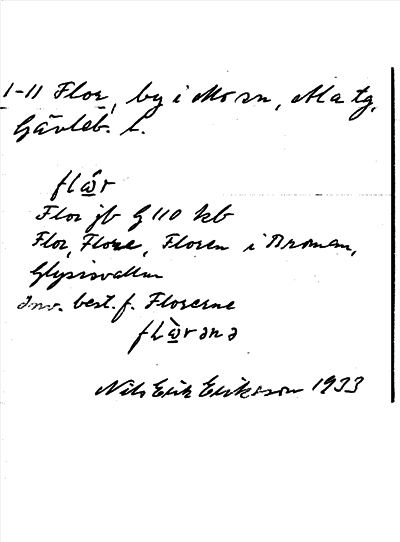 1-11 Flor, by i Mo sn, Ala tg,
Gävleb. l.
flώ̲r
Flor jb G 110 kb
Flor, Flore, Floren i Broman,
Glysisvallur
inv. best. f. Florerne
flὼ̲rənə
Nils Erik Eriksson 1933